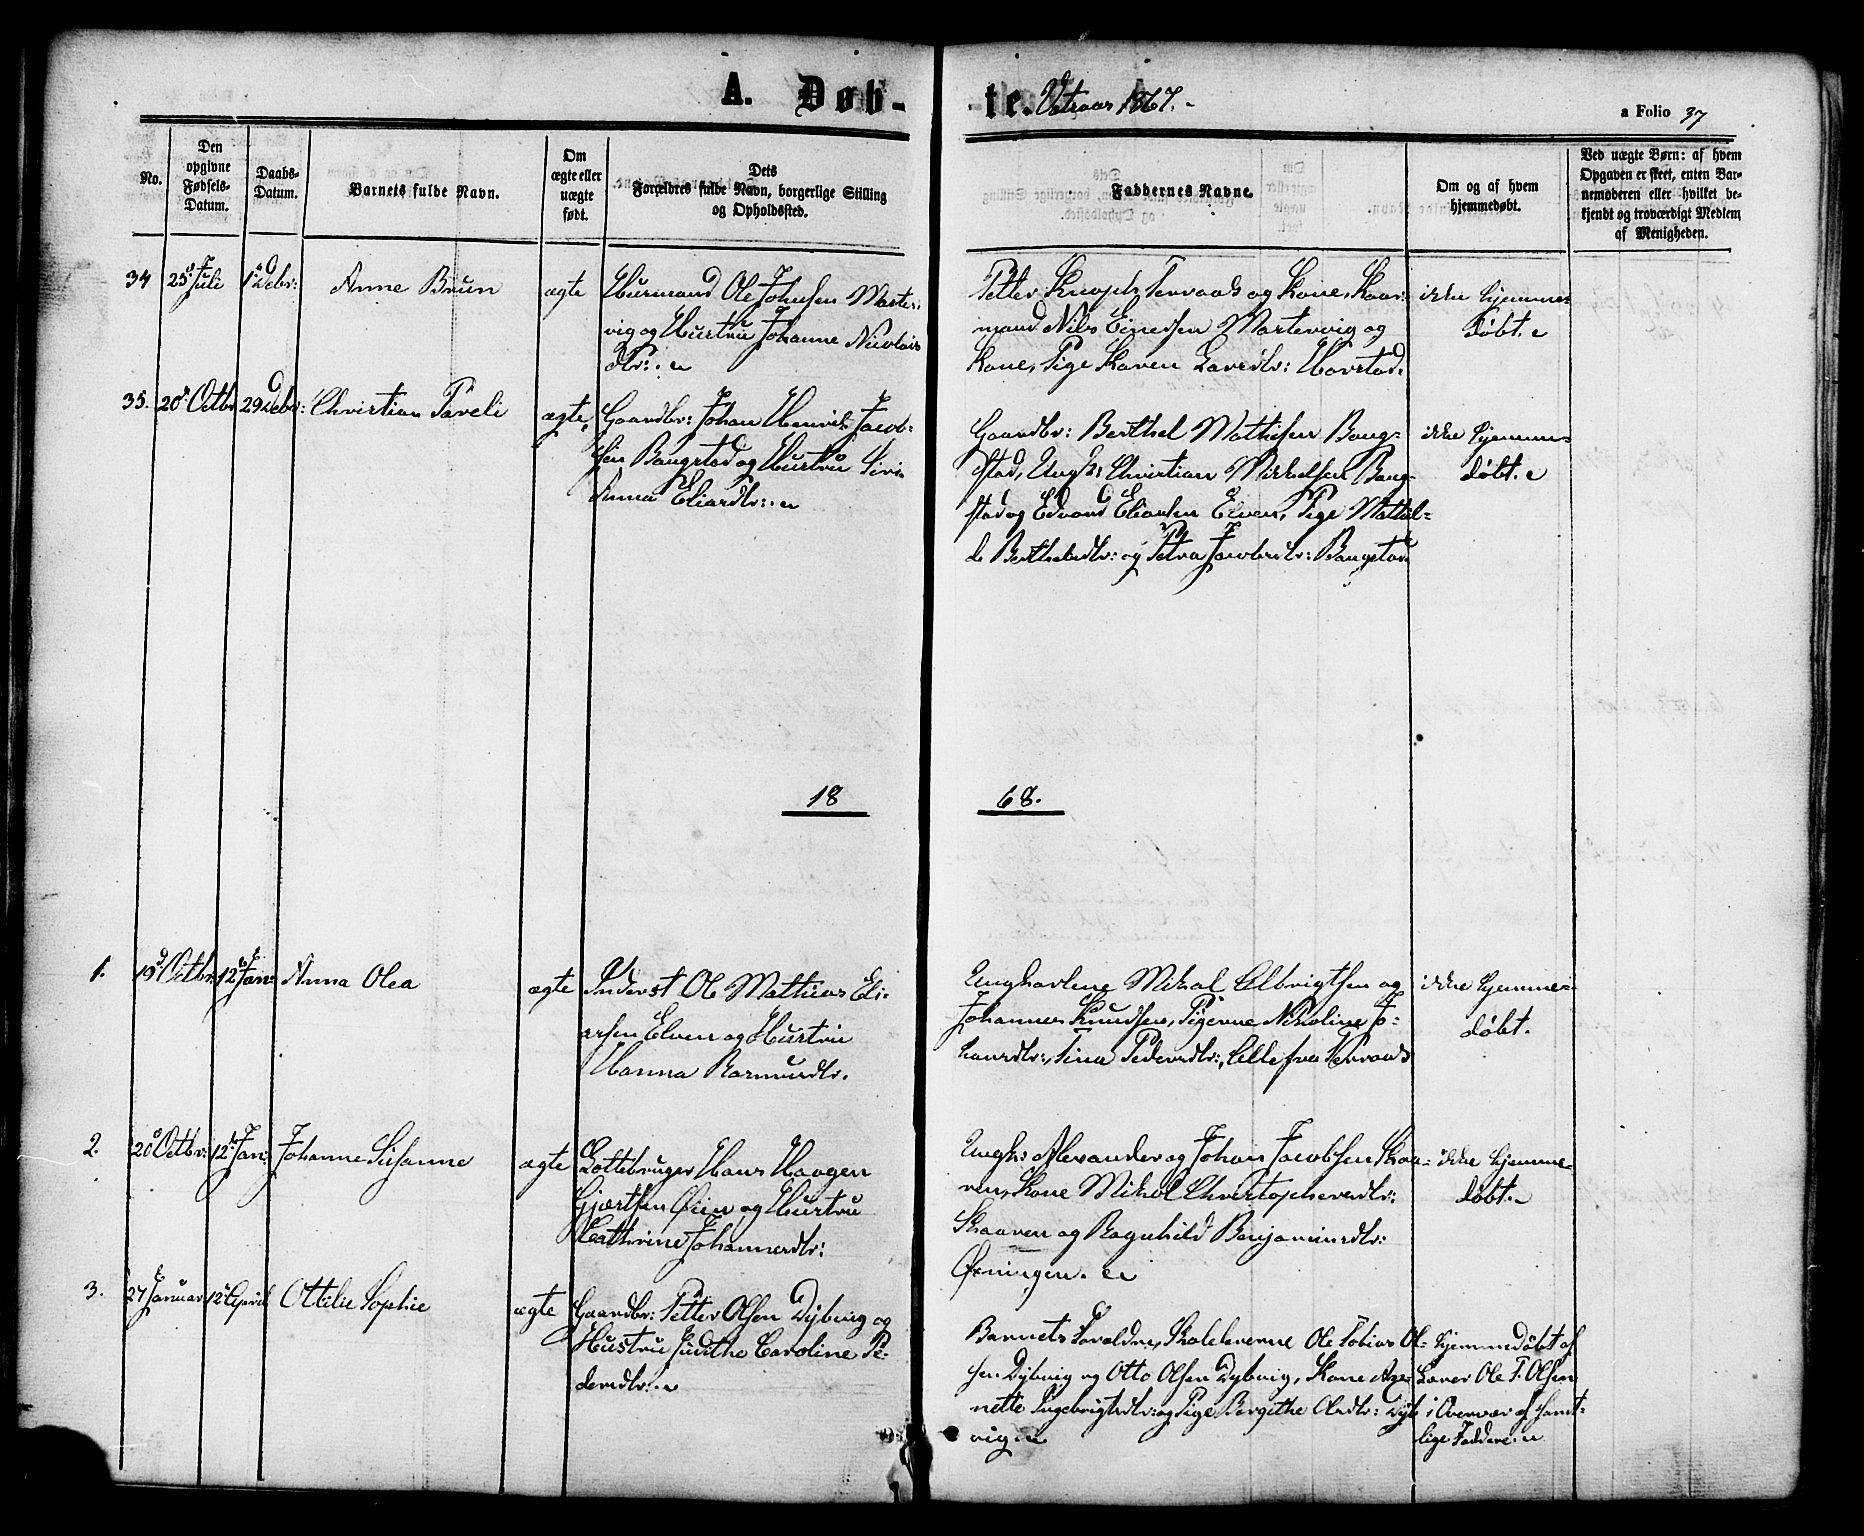 A. Døb-te. Vatraas 1867.-
a Folio 37
No.
Den opgivne Fødsels-Datum.
Daabs-Datum.
Barnets fulde Navn.
Om ægte eller uægte født.
Dets Forældres fulde Navn, borgerlige Stilling og Opholdssted.
Faddernes Navne.
Om og af hvem hjemmedøbt.
Ved uægte Børn: af hvem Opgaven er skeet, enten Barnemoderen eller hvilket bekjendt og troværdigt Medlem af Menigheden.
34 25 Juli 1 Debr: Anne Brun ægte
Huusmand Ole Johnsen Marte-
vig og Hustru Johanne Nicolais
Dtr:
Petter Knoph Terraak og Kone, Kaar-
mand Nils Einersen Martevvig og
Kone, Pige Karen Larsdtr: Horstad.
ikke hjemme-
døbt.
35. 20 Octbr 29 Debr: Christian Pareli ægte,
Gaardbr: Johan Henrik Jacob-
sen Bangstad og Hustru Sivi-
Anna Eliasdtr:
Gaardbr: Berthel Mathisen Bang-
stad, Ungk: Christian Mikkelsen Bang-
stad og Edvard Eliassen Elven, Pige Mathil-
de Berthelsdtr: og Petra Jacobsdtr: Bangstad.
ikke hjemme-
døbt.
18
68.
1. 19 Octbr: 12 Jan: Anna Olea ægte
Inderst Ole Mathias Eli-
assen Elven og Hustru
Hanna Rasmusdtr.
Ungkarlene Mikal Albrigtsen og
Johannes Knudsen, Pigerne Nikoline Jo-
hansdtr:, Tina Pedersdtr:, Alle fra Terraak
ikke hjemme-
døbt.
2. 20 Octbr: 12 Jan: Johanne Susanne ægte
Lottebruger Hans Haagen
Gjertsen Øien og Hustru
Cathrine Johannesdtr:
Ungk: Alexander og Johan Jacobsen Skaa-
ren, Kone Mikal Christophersdtr:
Skaaren og Ragnhild Benjaminsdtr:
Øxningen.
ikke hjemme-
døbt.
3. 27 Januar 12 April Ottilie Sophie ægte
Gaardbr: Petter Olsen Dybvig og
Hustru Judithe Caroline Pe-
dersdtr:
Barnets Forældre, Skolelærerne Ole Tobias Ol-
sen Dybvig og Otto Olsen Dybvig, Kone Ane-
nette Ingebrigtsdtr: og Pige Bergithe Olsdtr: Dyb-
vig.
hjemmedøbt af
Lærer Ole T. Olsen
i Overvær af samt-
lige Faddere.